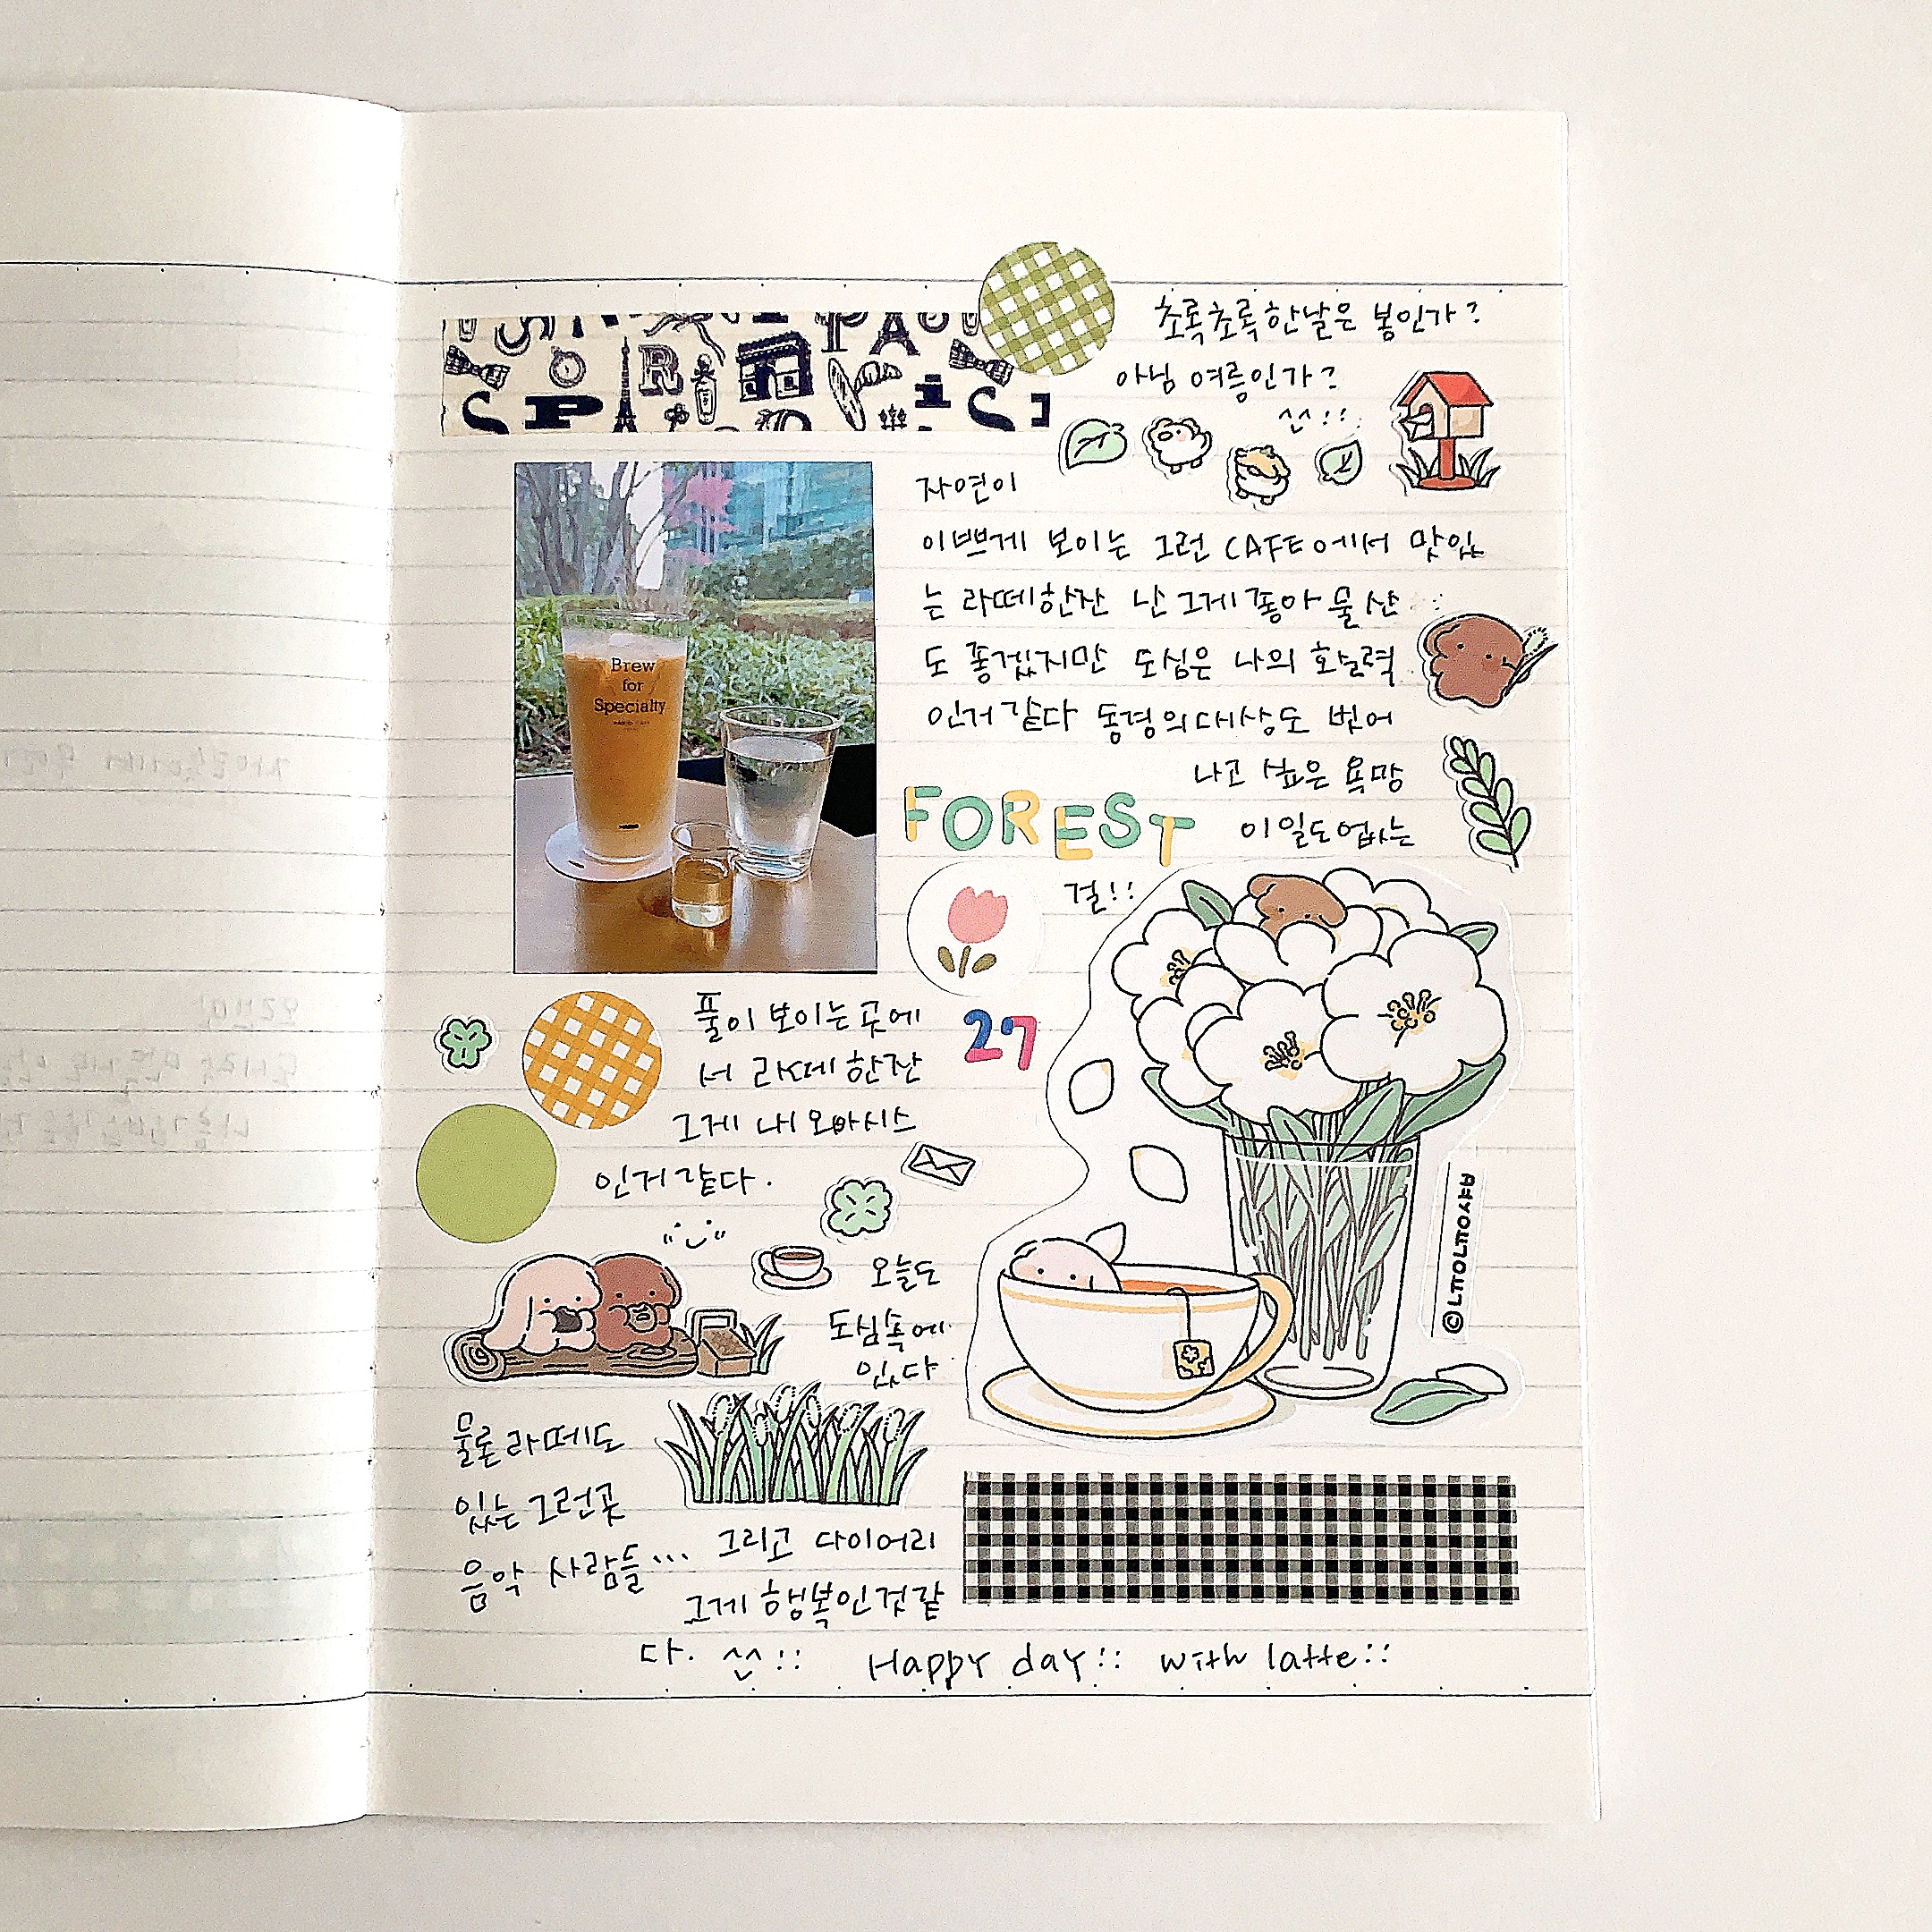 초록초록한날은 봄인가?
아님 여름인가?
^^!!
자연이
이쁘게 보이는 그런 CAFE에서 맛있
는 라떼한잔 난 그게좋아 물 산
도 좋겠지만 도심은 나의
인거같다 동경의대상도 벗어
나고 싶은 욕망
이일도없는
걸!!
Brew
for
Specialty
FOREST
27
풀이 보이는 곳에
서 라떼 한잔
그게 내 오아시스
인거같다.
오늘도
도심속에
있다
물론 라떼도
있는 그런곳
음악 사람들...
그리고 다이어리
그게 행복인것같
다. ^^!!
Happy day!! with latte!!